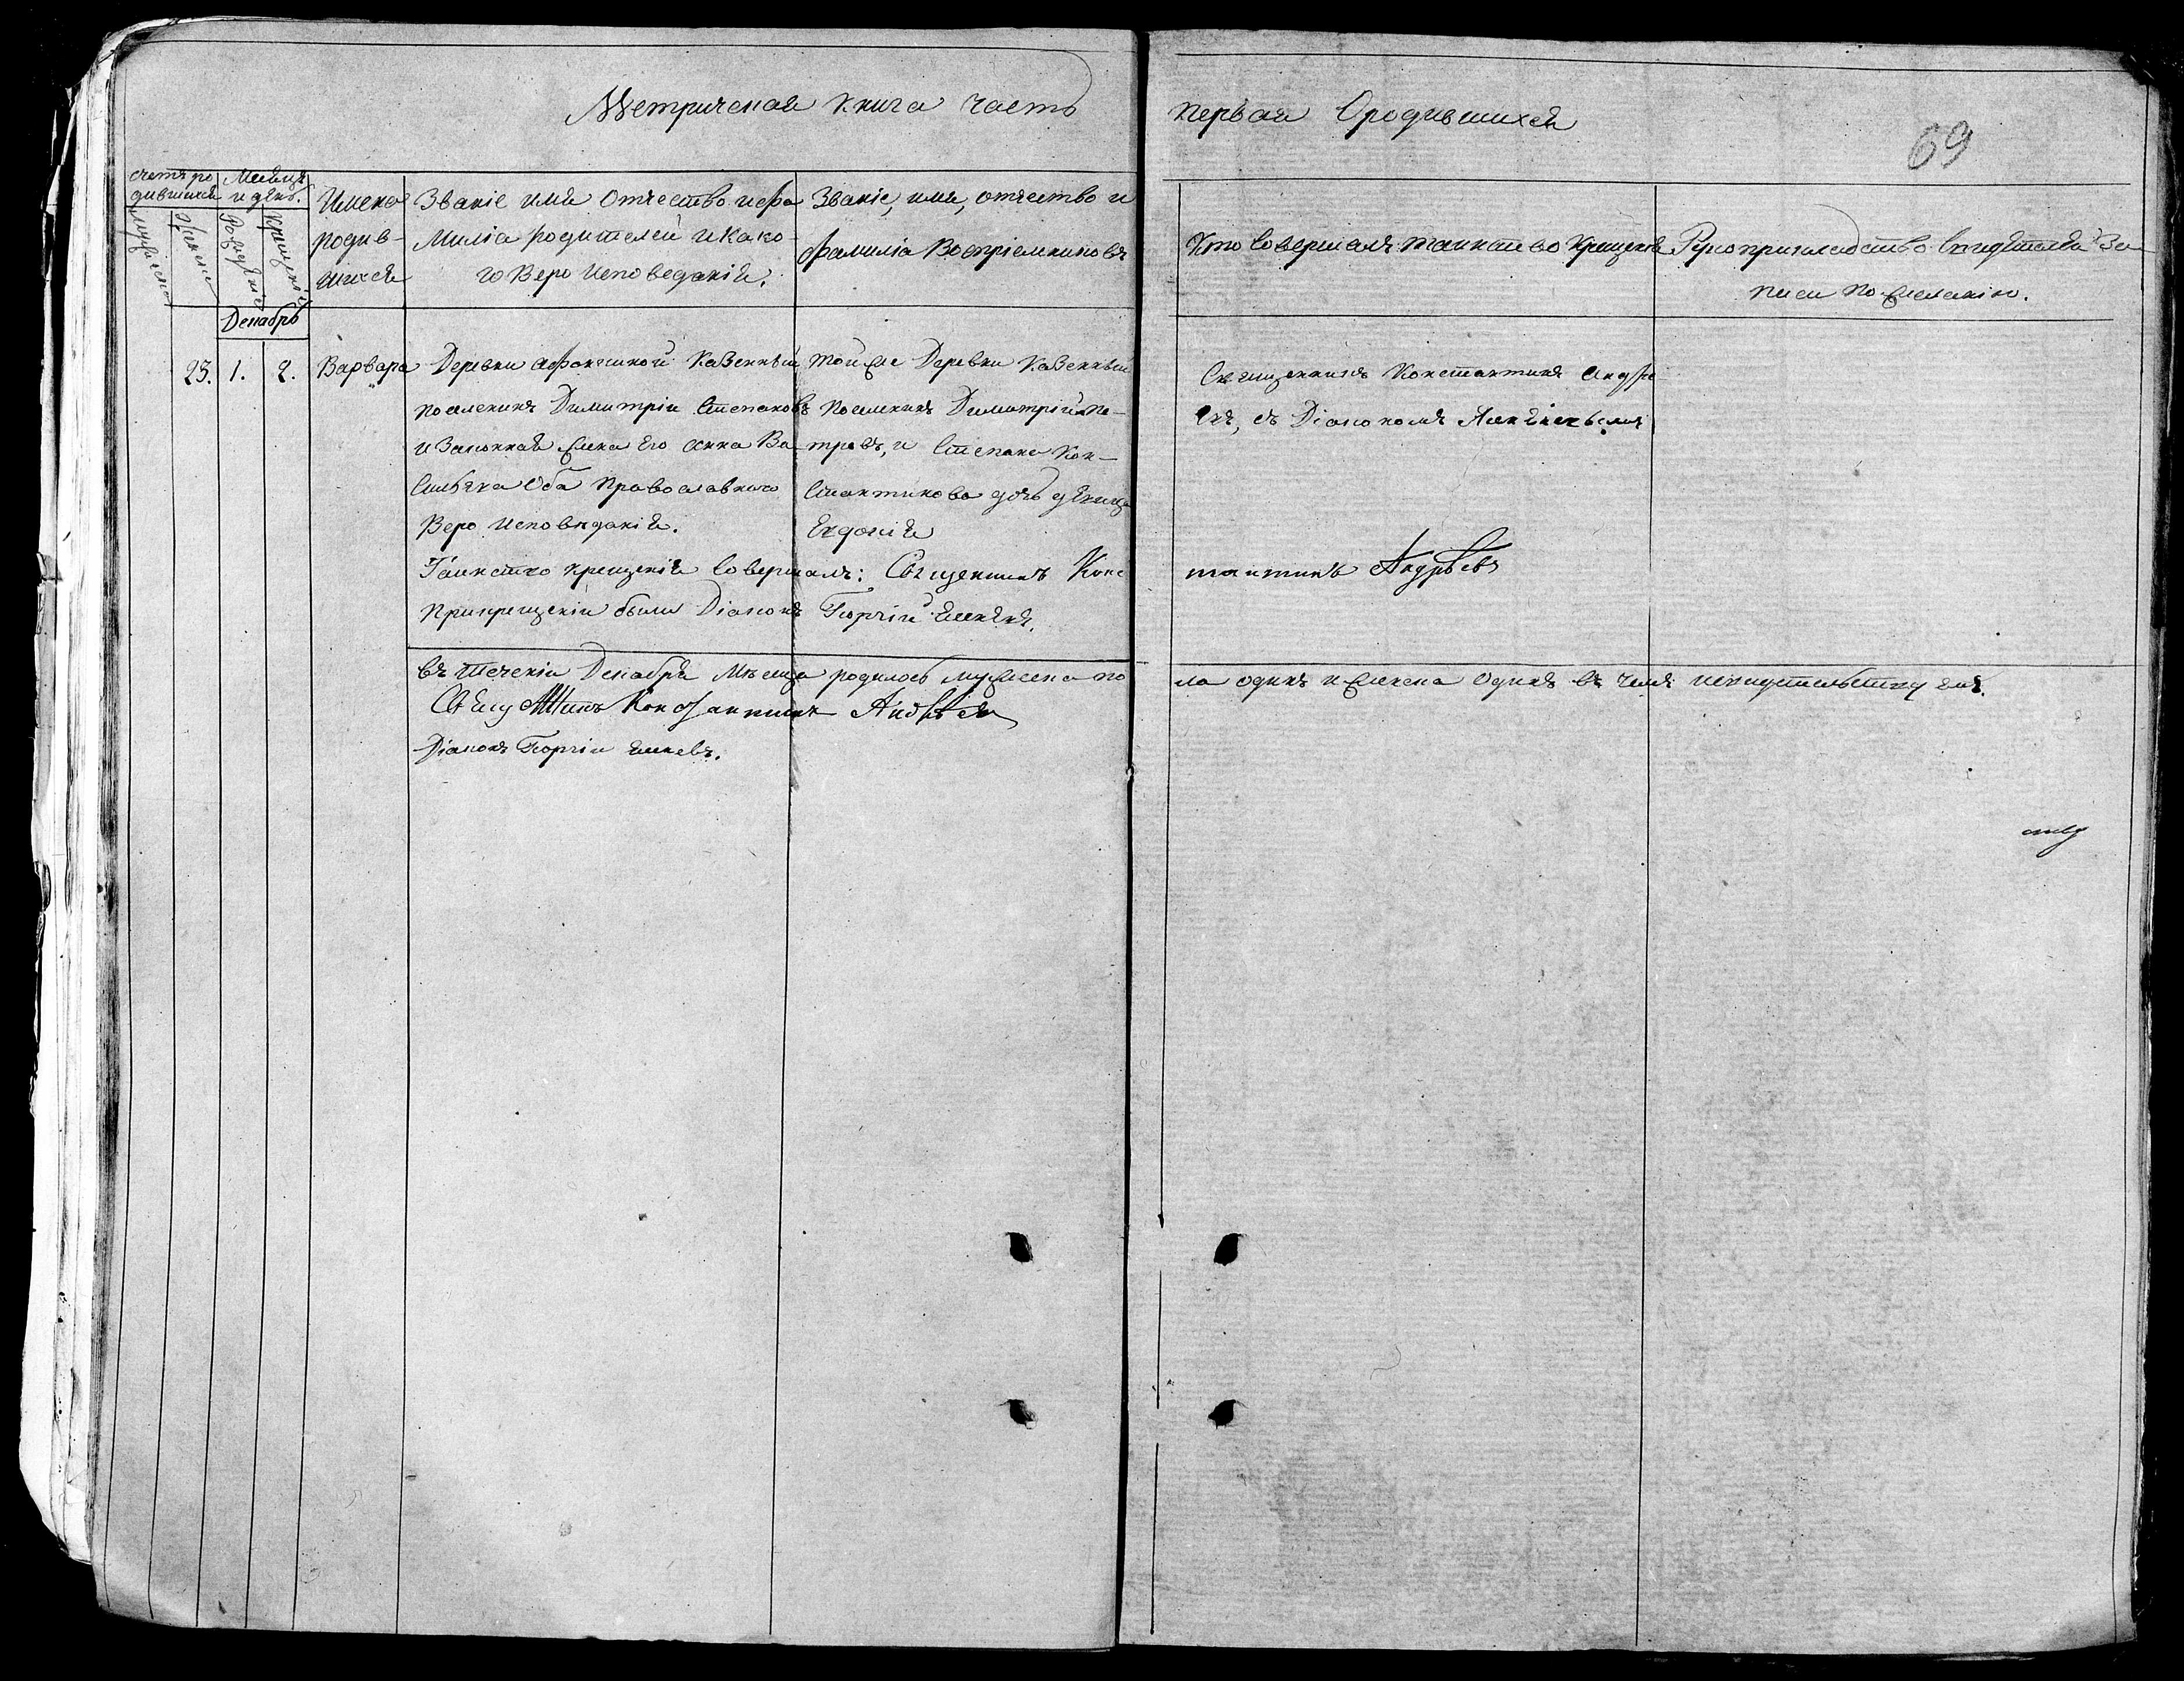 Метрическая книга часть первая О родившихся
69
счетъ ро дившихся
Мѣсяцъ и день.
мужеска
женска
рожденіе
крещеніе
Имена родив- шихся
Званіе имя Отчество и фа милія родителей и како го Веро исповеданія.
Званіе, имя, отчество и фамилія Воспріемниковъ
Кто Совершалъ таинство крещенія
Рукоприкладство Свидѣтелей За писи по желанію.
Декабрь
23. 1. 2. Варвара
Деревни Казенный
поселенинъ Димитріи Степановъ
и Законная жена Его Анна Ва
сильева Оба Православнаго
Веро исповѣданія.
Той же Деревни Казенный
поселенинъ Димитрій Пе-
тровъ, и Степана Кон-
стантинова дочь дѣвица
Евдокія
Священникъ Константинъ Андре
евъ, съ Діакономъ
Таинство крещенія Совершалъ: Священникъ Конс тантинъ Андрѣевъ
При крещеніи были Діаконъ Георгій
въ теченіи Декабря Мѣсяца родилось мужеска по ла одинъ и женска Одинъ въ чемъ и свидѣтельствуемъ.
Свящ Константинъ Андрѣевъ
Діаконъ Георгіи